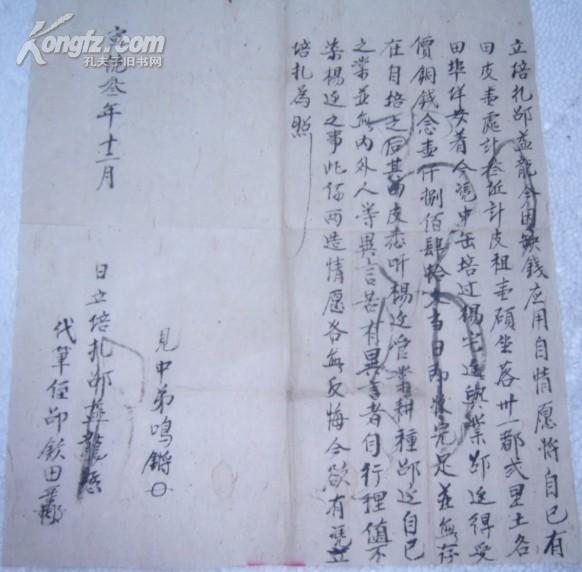 立培扎邵益龍今因缺錢应用自情愿將自已有
田皮壹處計叁坵計皮租壹碩坐落卅一都弍里土名
田𡊨垟安着今凴中缶培过楊宅边興業邵边得受
價銅錢念壹仟捌佰肆拾文当日即收完足並無存
在自培之后其田皮悉听楊边官業耕種邵边自己
之業並無内外人等異言若有異言者自行理值不
染楊边之事此係两造情愿各無反悔今欲有凴立
培扎為照
宣統叁年十二月
日立培扎邵益龍
見中弟鳴鏘
代筆侄邵鉄田
Kongfz.com
孔夫子旧书网